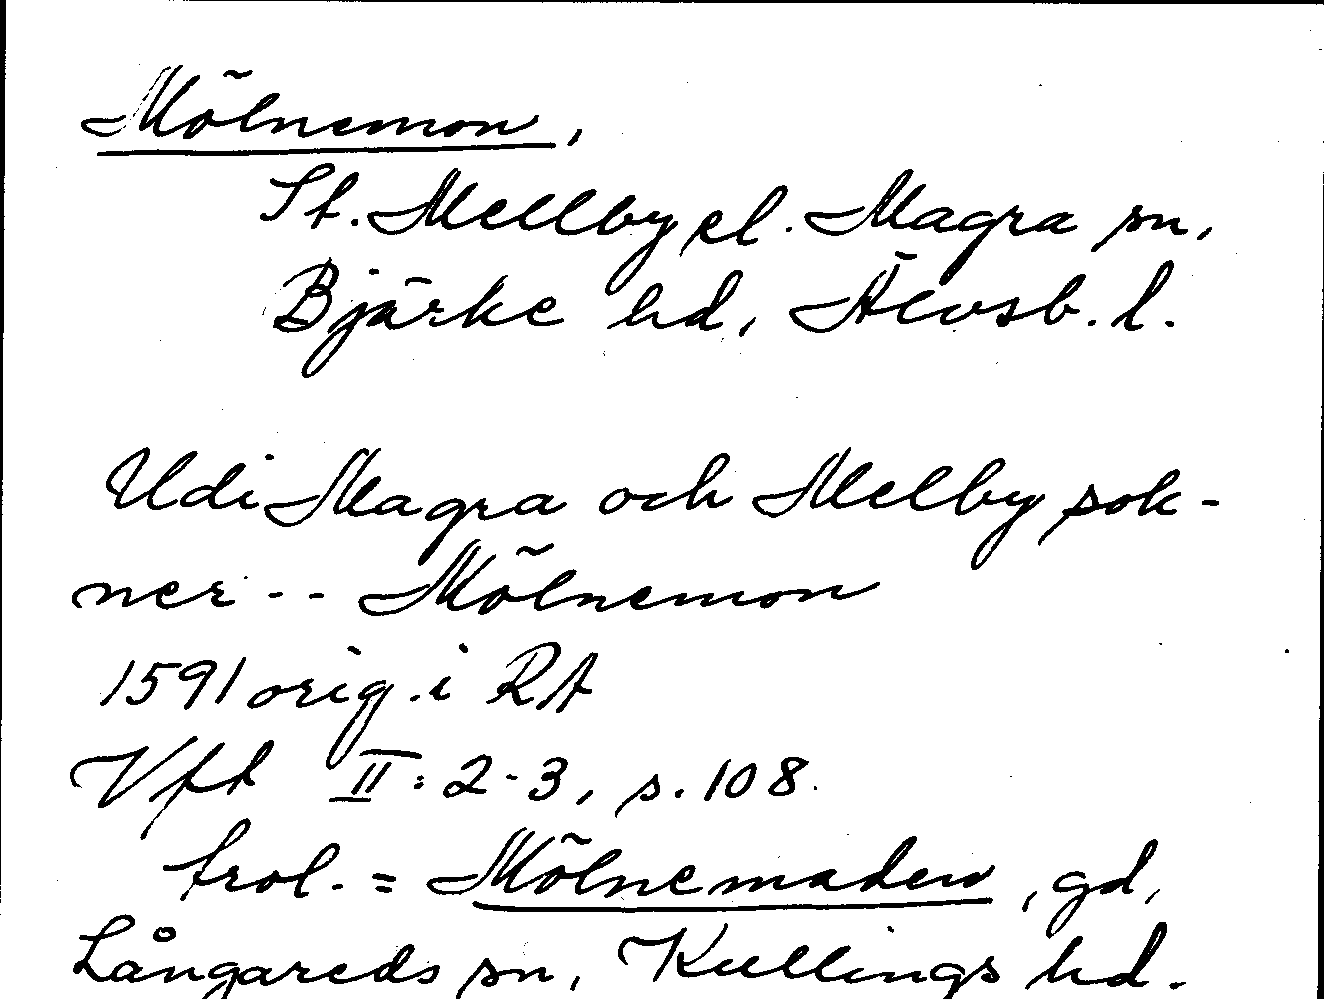 Mölnemon,
St. Mellby el. Magra sn,
Bjärke hd, Älvsb. l.
Udi Magra och Melby sok-
ner -- Mölnemon
1591 orig. i RA
Vft II: 2-3, s. 108.
trol. = Mölnemaden, gd,
Långareds sn, Kullings hd.